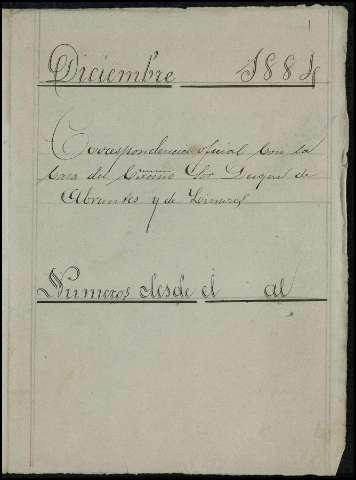 1
Diciembre 1884
Correspondencia oficial con la
Casa del Excmo Sor Duque de
Abrantes y de Linares
Números desde el al